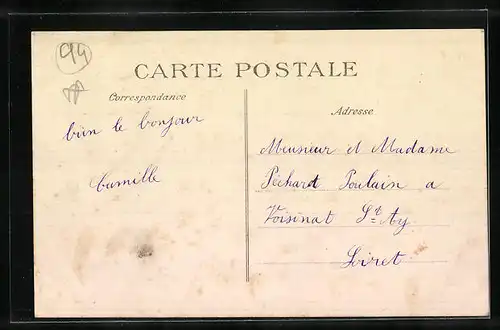 94
CARTE POSTALE
Correspondance
Adresse
bien le bonjour
Camille
Monsieur et Madame
Péchard Poulain a
Voisinat St Ay
Loiret